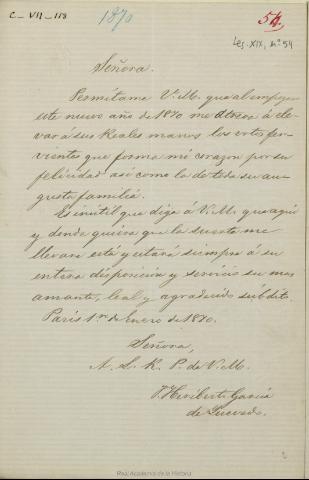 C_VII_158
1870
54.
Leg. XIX, nº 54
Señora.
Permítame V. M. que al empezar
este nuevo año de 1870 me atreva á ele-
var á sus Reales manos los votos fer-
vientes que forma mi corazon por su
felicidad así como la de toda su au-
gusta familia.
Es inútil que diga á V. M. que aquí
y donde quiera que la suerte me
lleve está y estará siempre á su
entera disposicion y servicio su mas
amante, leal y agradecido súbdito.
Paris 1º de Enero de 1870.
Señora,
A. L. R. P. de V. M.
J. Heriberto García
de Quevedo.
2
Real Academia de la Historia